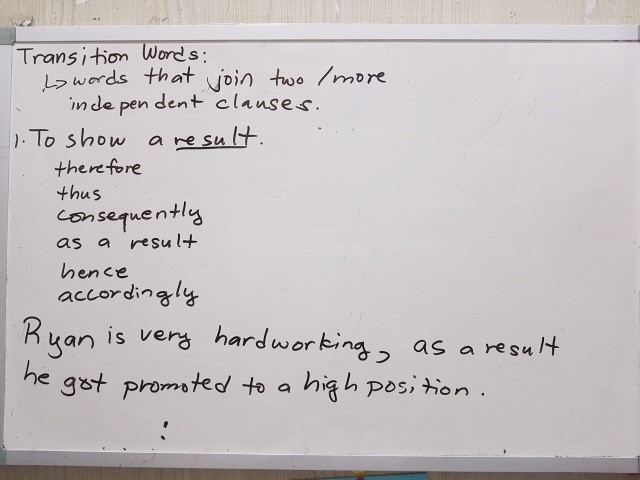 Transition Words:
↳ words that join two /more
independent clauses.
1. To show a result.
therefore
thus
consequently
as a result
hence
accordingly
Ryan is very hardworking, as a result
he got promoted to a high position.
: